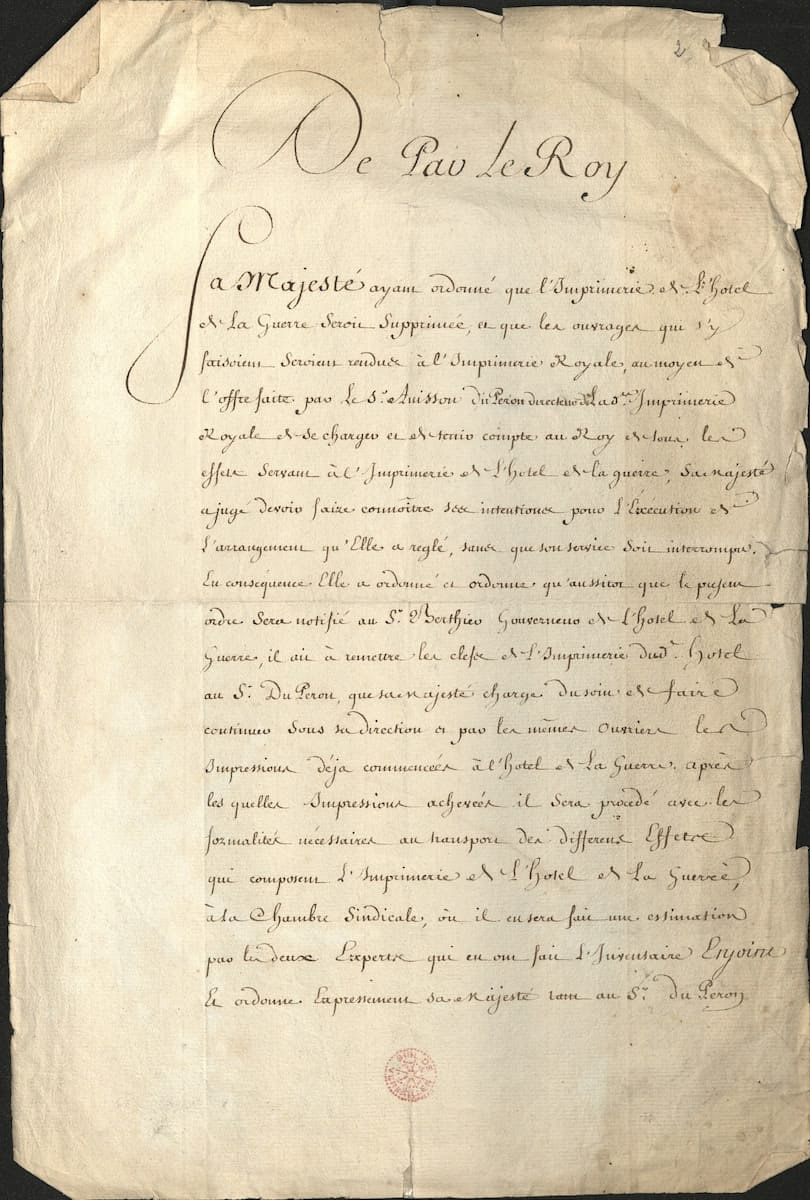 2
De Par Le Roy
Sa Majesté ayant ordonné que l'Imprimerie de L'hotel
de La Guerre Seroit Supprimée, et que les ouvrages qui s'y
faisoient Seroient rendus à l'Imprimerie Royale, au moyen de
l'offre faite par Le Sr. Anisson Du Peron directeur de La de. Imprimerie
Royale de se charger et de tenir compte au Roy de tous les
effets Servant à l'Imprimerie de L'hotel de la guerre, Sa Majesté
a jugé devoir faire connoître ses intentions pour L'Exécution de
L'arrangement qu'Elle a reglé, sans que son service soit interrompu.
En conséquence Elle a ordonné et ordonne qu'aussitot que le present
ordre Sera notifié au Sr. Berthier Gouverneur de L'hotel de La
Guerre, il ait à remettre les clefs de L'Imprimerie dud. hotel
au Sr. Du Peron, que sa Majesté charge du soin de faire
continuer Sous sa direction et par les mêmes Ouvriers les
Impressions déja commencées à l'hotel de La Guerre. après
les quelles Impressions achevées il Sera procédé avec les
formalités nécessaires au transport des differens Effets
qui composent L'Imprimerie de L'hotel de La Guerre,
à La Chambre Sindicale, où il en sera fait une estimation
par les deux Experts qui en ont fait L'Inventaire Enjoint
Et ordonne Expressement sa Majesté tant au Sr. du Peron